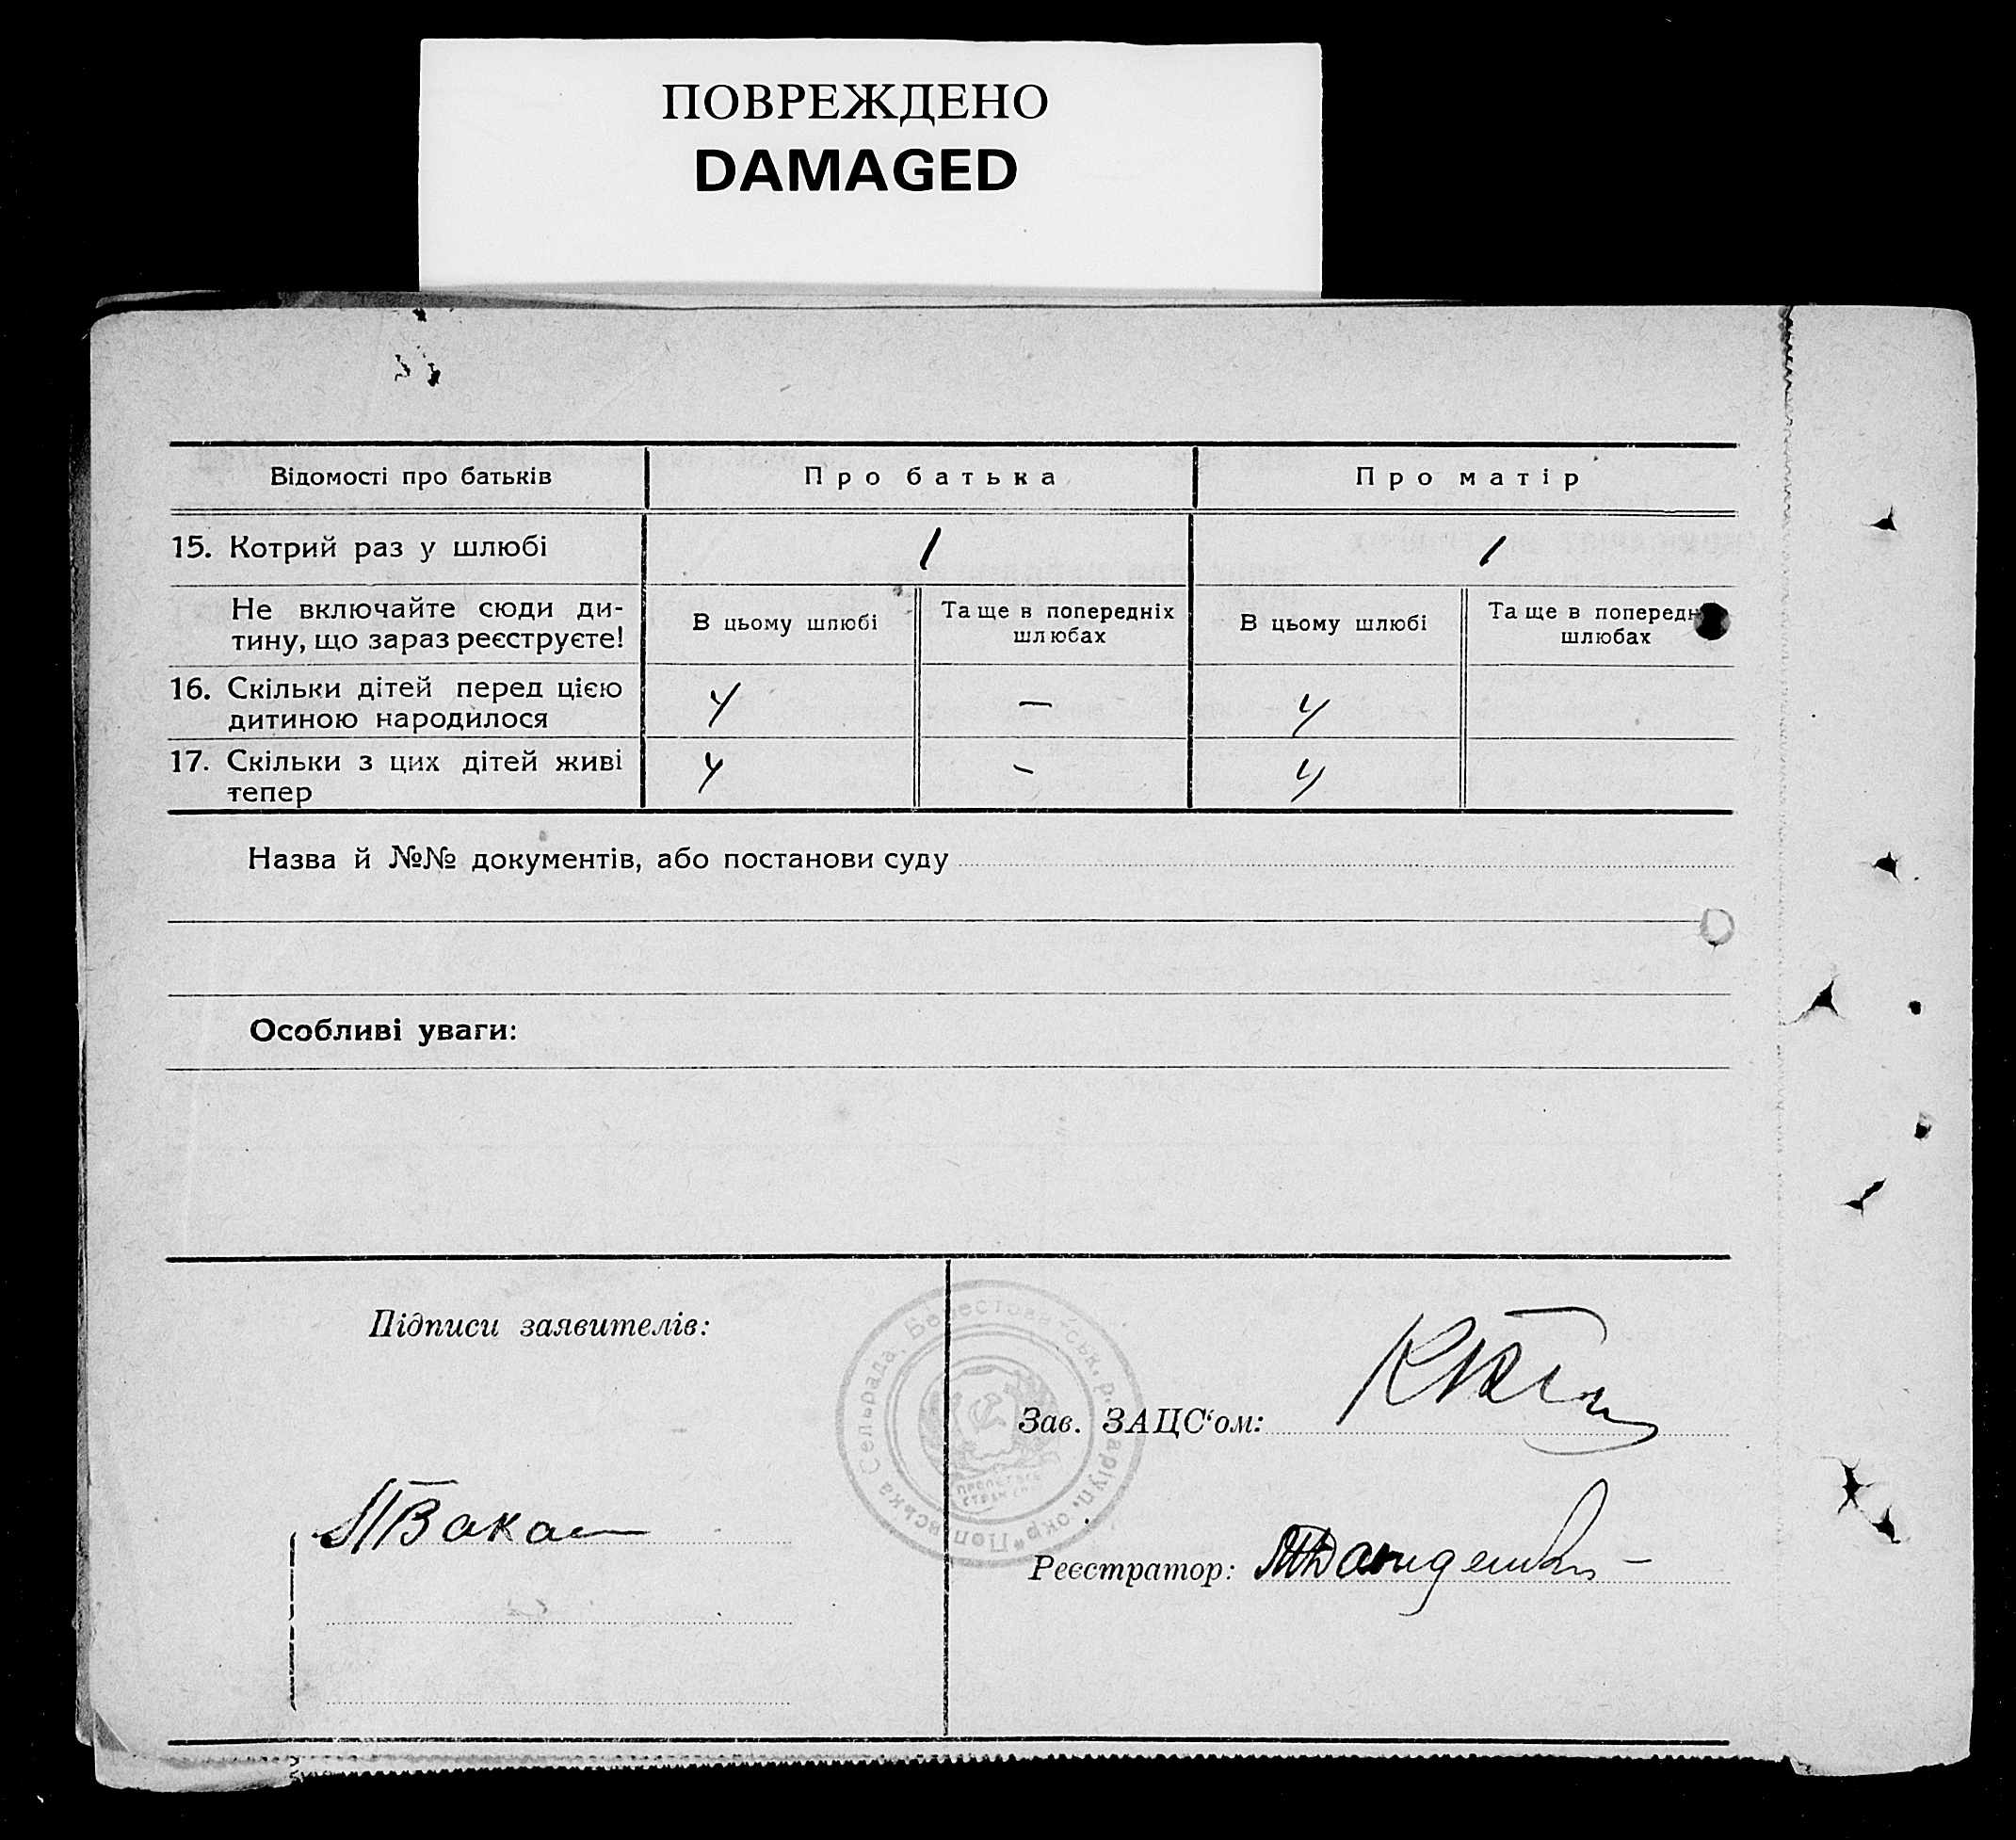 ПОВРЕЖДЕНО
DAMAGED
Відомості про батьків
Про батька
Про матір
15. Котрий раз у шлюбі
1
1
Не включайте сюди ди-
тину, що зараз реєструєте!
В цьому шлюбі
Та ще в попередніх
шлюбах
В цьому шлюбі
Та ще в попередн
шлюбах
16. Скільки дітей перед цією
дитиною народилося
4
—
4
17. Скільки з цих дітей живі
тепер
4
-
4
Назва й №№ документів, або постанови суду
Особливі уваги:
Підписи заявителів:
Зав. ЗАЦС‘ом:
Реєстратор:
Сельрада,